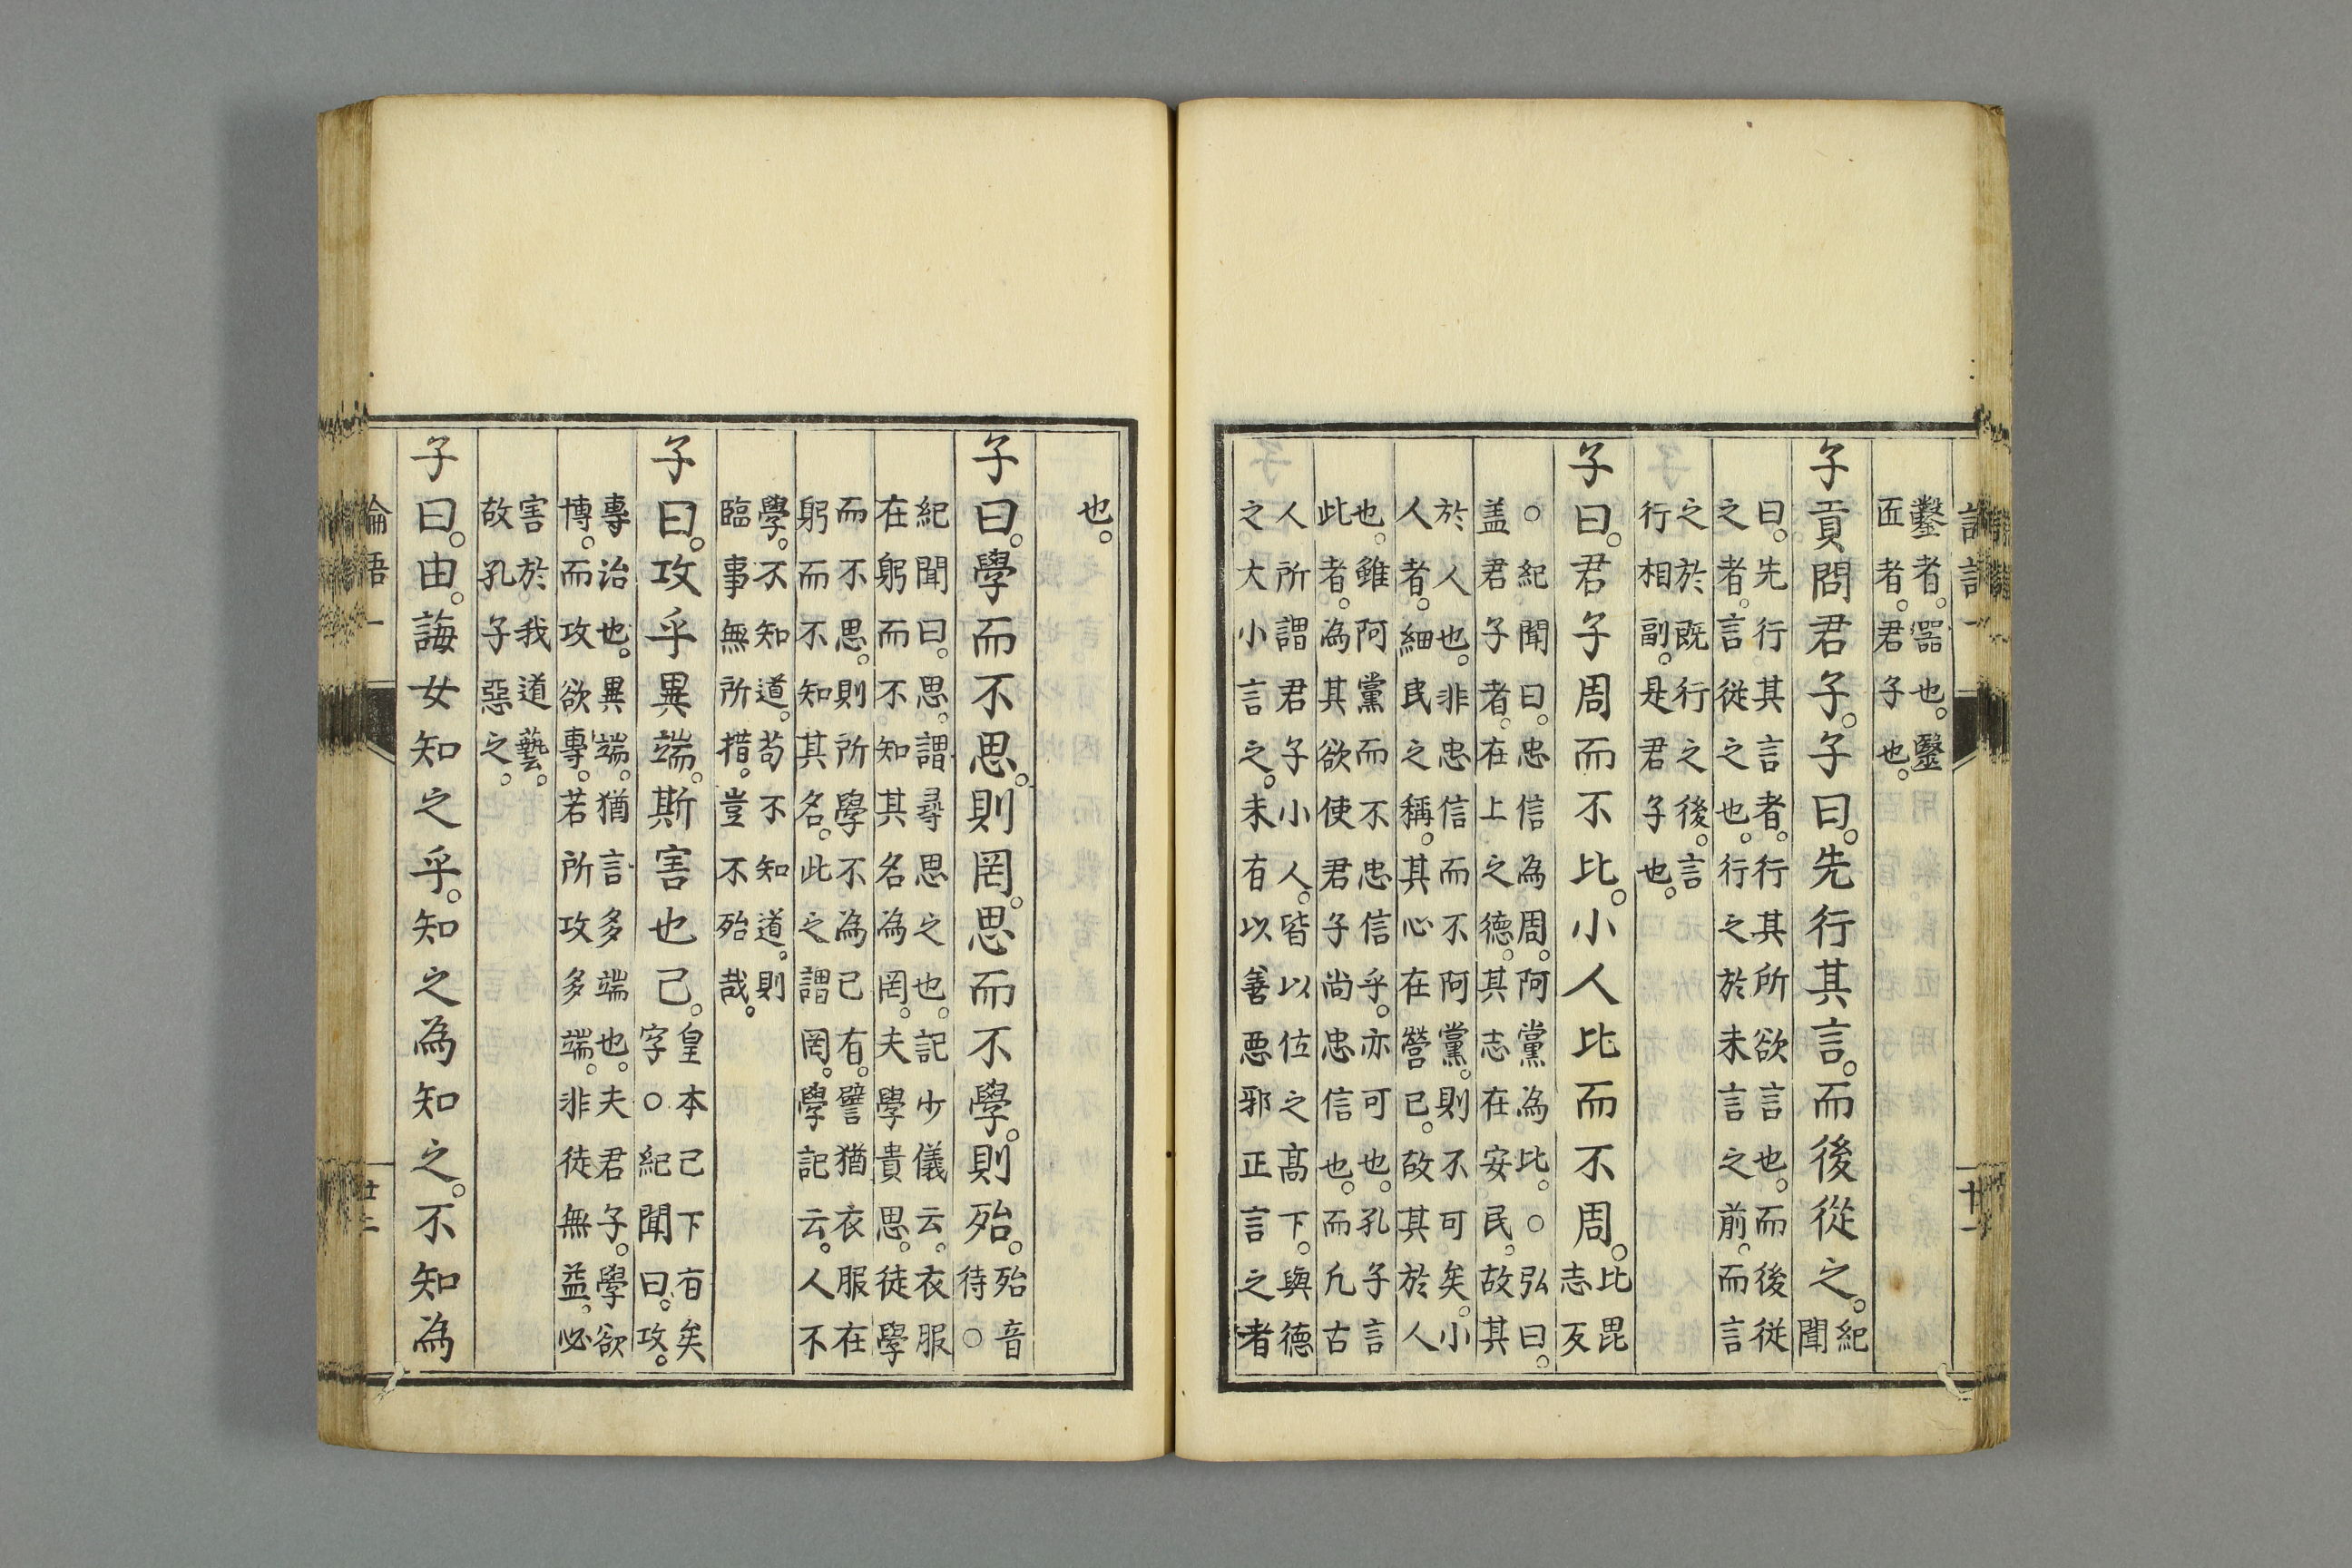 鑿者。器也。鑿
匠者。君子也。
子貢問君子。子曰。先行其言。而後從之。紀
聞
曰。先行其言者。行其所欲言也。而後從
之者。言從之也。行之於未言之前。而言
之於既行之後。言
行相副。是君子也。
子曰。君子周而不比。小人比而不周。比毘
志反
○紀聞曰。忠信為周。阿黨為比。○弘曰。
盖君子者。在上之德。其志在安民。故其
於人也。非忠信而不阿黨。則不可矣。小
人者。細民之稱。其心在營己。故其於人
也。雖阿黨而不忠信乎。亦可也。孔子言
此者。為其欲使君子尚忠信也。而凡古
人所謂君子小人。皆以位之高下。與德
之大小言之。未有以善惡邪正言之者
也。
子曰。學而不思。則罔。思而不學。則殆。殆音
待○
紀聞曰。思。謂尋思之也。記少儀云。衣服
在躬而不知其名為罔。夫學貴思。徒學
而不思。則所學不為己有。譬猶衣服在
躬而不知其名。此之謂罔。學記云。人不
學。不知道。苟不知道。則
臨事無所措。豈不殆哉。
子曰。攻乎異端。斯害也已。皇本已下有矣
字○紀聞曰。攻。
專治也。異端。猶言多端也。夫君子。學欲
博。而攻欲專。若所攻多端。非徒無益。必
害於我道藝。
故孔子惡之。
子曰。由。誨女知之乎。知之為知之。不知為